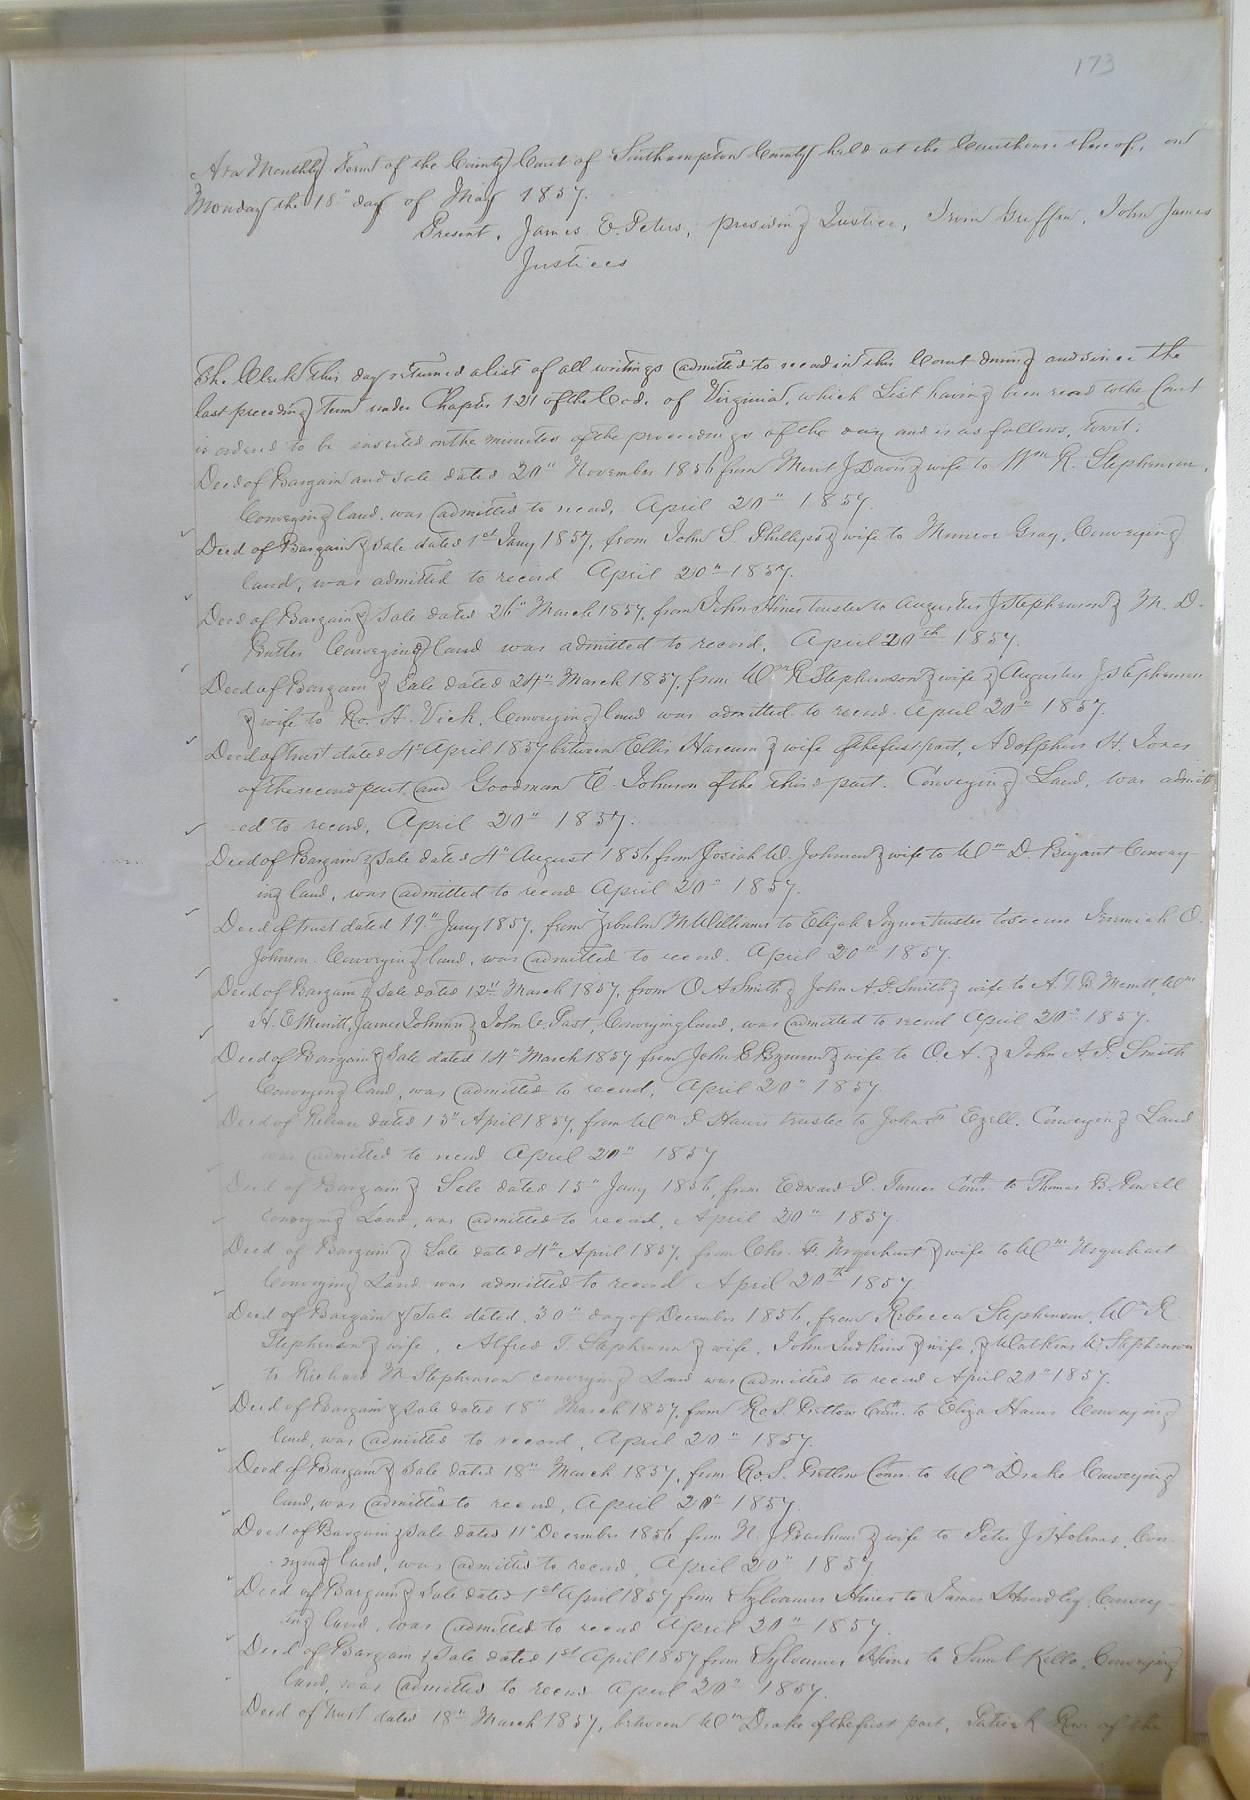 173
At a Monthly Term of the County Court of Southampton County held at the Courthouse thereof, on
Monday the 18" day of May 1857.
Present, James E. Peters, presiding Justice, Irvin Griffin, John James
Justices
The Clerk this day returned a list of all writings admitted to record in this Court during and since the
last preceding Term under Chapter 121 of the Code of Virginia, which List having been read to the Court
is ordered to be inserted on the minutes of the proceedings of the day and is as follows, Towit:
Deed of Bargain and sale dated 20" November 1856 from Merit J Davis & wife to Wm R. Stephenson,
Conveying land, was admitted to record, April 20" 1857.
Deed of Bargain & Sale dated 1st Jany 1857, from John S. Phillips & wife to Munroe Gray, Conveying
land, was admitted to record April 20" 1857.
Deed of Bargain & Sale dated 26" March 1857, from John Hines trustee to Augustus J Stephenson & M. D.
Butler Conveying land was admitted to record, April 20th 1857.
Deed of Bargain & Sale dated 24" March 1857, from Wm R Stephenson & wife & Augustus J Stephenson
& wife to Ro. H. Vick, Conveying land was admitted to record. April 20" 1857.
Deed of trust dated 4" April 1857 between Ellis & wife of the first part, Adolphus H. Jones
of the second part, and Goodman E. Johnson of the third part. Conveying Land, was admitt
-ed to record, April 20" 1857.
Deed of Bargain & Sale dated 4" August 1856 from Josiah W. Johnson & wife to Wm D. Bryant Convey-
ing land, was admitted to record April 20" 1857.
Deed of trust dated 19" Jany 1857, from Zebulon McWilliams to Elijah Joyner trustee to secure Jeremiah O.
Johnson. Conveying land, was admitted to record. April 20" 1857.
Deed of Bargain & Sale dated 12" March 1857, from O A Smith & John A. P. Smith & wife to A. T. B. Merritt, Wm
H. E Merritt, James Johnson & John C. Conveying land, was admitted to record April 20" 1857.
Deed of Bargain & Sale dated 14" March 1857 from John E & wife to O. A. & John A. P. Smith
Conveying land, was admitted to record, April 20" 1857.
Deed of Release dated 15" April 1857, from Wm trustee to John F Ezell. Conveying Land
was admitted to record April 20" 1857
Deed of Bargain & Sale dated 15" Jany 1856, from Edward P. Turner to Thomas B. Powell
Conveying Land, was admitted to record, April 20" 1857
Deed of Bargain & Sale dated 4" April 1857, from Chs. F. Urquhart & wife to Wm Urquhart
Conveying Land was admitted to record April 20th 1857.
Deed of Bargain & Sale dated, 30" day of December 1856, from Rebecca Stephenson, Wm R
Stephenson & wife, Alfred T. Stephenson & wife, John Judkins & wife, & Watkins W Stephenson
to Richard M Stephenson conveying Land was admitted to record April 20" 1857.
Deed of Bargain & Sale dated 18" March 1857, from Ro. S. Pretlow Comr. to Eliza Conveying
land, was admitted to record, April 20" 1857.
Deed of Bargain & Sale dated 18" March 1857, from Ro. S. Pretlow Comr. to Wm Drake Conveying
land, was admitted to record, April 20" 1857.
Deed of Bargain & Sale dated 11" December 1856 from N. J & wife to Peter J Holmes, Con-
-veying land, was admitted to record, April 20" 1857
Deed of Bargain & Sale dated 1st April 1857 from Sylvanus Hines to James Convey-
ing land, was admitted to record April 20" 1857.
Deed of Bargain & Sale dated 1st April 1857 from Sylvanus Hines to Saml Kello, Conveying
land, was admitted to record April 20" 1857.
Deed of trust dated 18" March 1857, between Wm Drake of the first part, Patrick of the